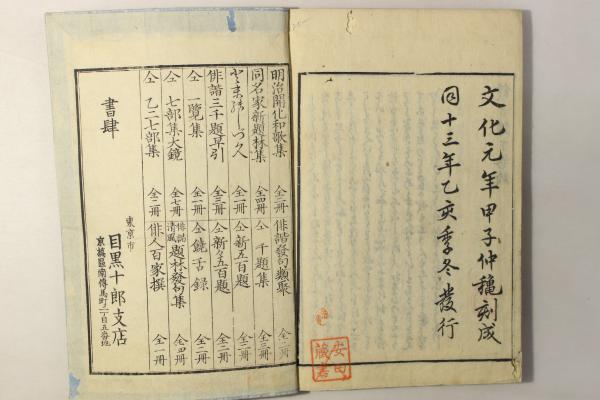 文化元年甲子仲穐刻成
同十三年乙亥季冬發行
安田
藏書
明治開化和歌集 全二冊
同名家新題林集 全四冊
俳諧三千題早引 全三冊
仝 一覽集 全一冊
仝 七部集大鏡 全七冊
仝 乙二七部集 全二冊
俳諧發句類聚 全二冊
仝 千題集 全二冊
仝 新五百題 全二冊
仝 新々五百題 全二冊
仝 饒舌錄 全二冊
俳諧清風 題林發句集 全四冊
俳人百家撰 全一冊
書肆
東京市
目黒十郎支店
京橋區南傳馬町二丁目五番地